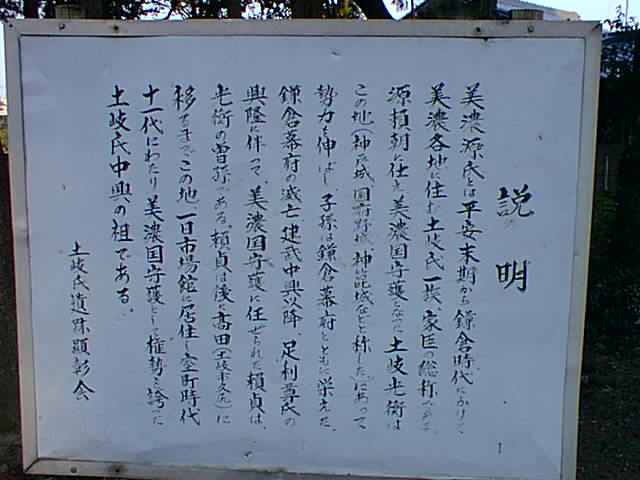 説明
美濃源氏とは平安末期から鎌倉時代にかけて
美濃各地に住む土岐氏一族、家臣の総称である。
源頼朝に仕え、美濃国守護となった土岐光衡は
この地(神戸城、国府野城、神箆城などと称した)にあって
勢力を伸ばし、子孫は鎌倉幕府とともに栄えた。
鎌倉幕府の滅亡、建武中興以降、足利尊氏の
興隆に伴って、美濃国守護に任ぜられた頼貞は、
光衡の曽孫である。頼貞は後に高田(土岐市)に
移るまでこの地、一日市場館に居住し、室町時代
十一代にわたり美濃国守護として権勢を誇った
土岐氏中興の祖である。
土岐氏遺跡顕彰会